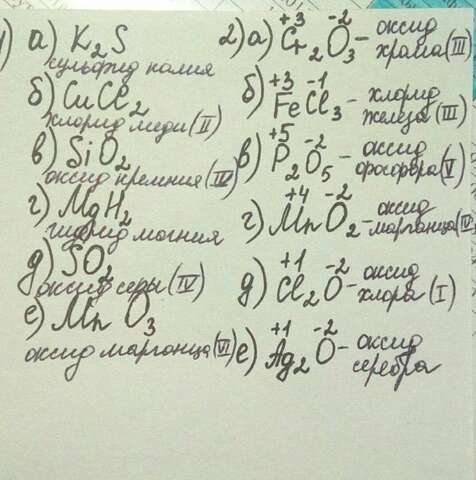 1) а) K₂S
сульфид калия
б) CuCl₂
хлорид меди (II)
в) SiO₂
оксид кремния (IV)
г) MgH₂
гидрид магния
д) SO₂
оксид серы (IV)
е) MnO₃
оксид марганца (VI)
+3 -2
2) а) Cr₂O₃ - оксид
хрома (III)
+3 -1
б) FeCl₃ - хлорид
железа (III)
+5 -2
в) P₂O₅ - оксид
фосфора (V)
+4 -2
г) MnO₂ - оксид
марганца (IV)
+1 -2
д) Cl₂O - оксид
хлора (I)
+1 -2
е) Ag₂O - оксид
серебра